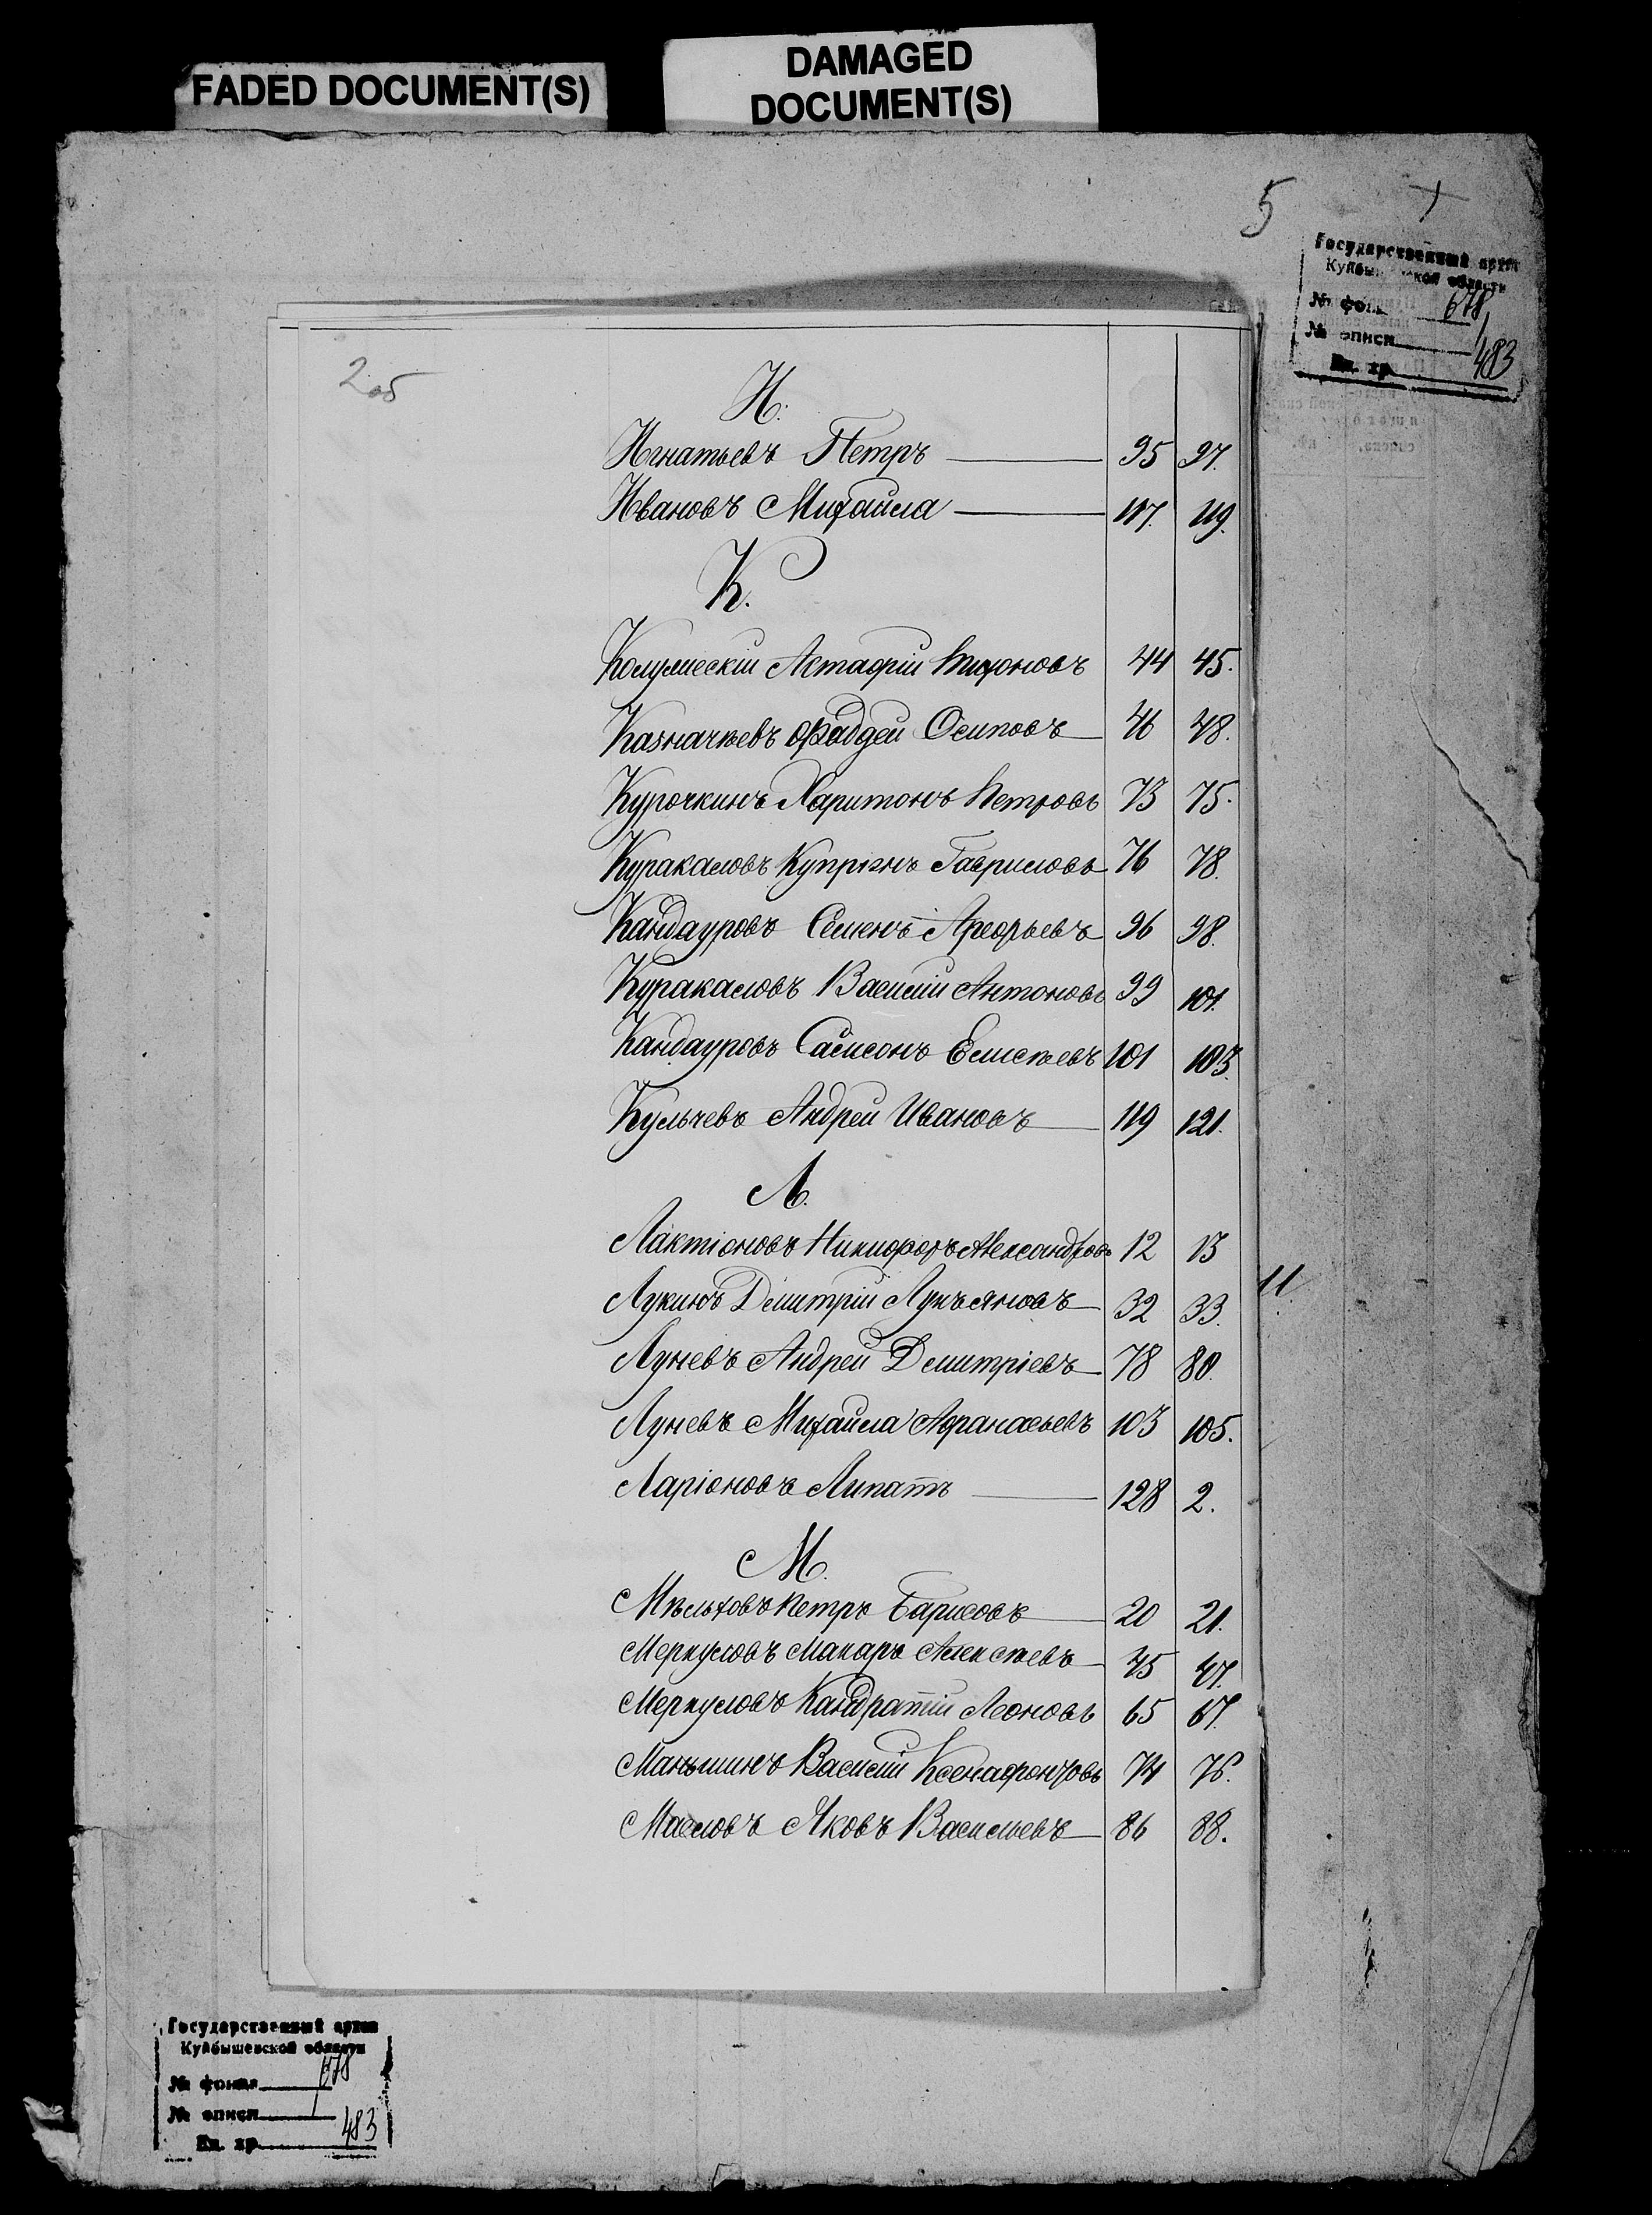 FADED DOCUMENT(S)
DAMAGED
DOCUMENT(S)
5
Государственный архив
Куйбышевской области
№ фонда 678
№ описи 1
Ед. хр. 483
2об
И.
Игнатьевъ Петръ 95 97.
Ивановъ Михайла 117. 119.
К.
Астафій 44 45.
Казначѣевъ Фаддей Осиповъ 46 48.
Курочкинъ Харитонъ Петровъ 73 75.
Куракаловъ Купріянъ Гавриловъ 76 78.
Кандауровъ Семенъ 96 98.
Куракаловъ Василій Антоновъ 99 101.
Кандауровъ Самсонъ Елисѣевъ 101 103.
Кульчевъ Андрей Ивановъ 119 121.
Л.
Лактіоновъ Никифоръ Александровъ 12 13
Лукинъ Дмитрій Лукъяновъ 32 33.
Луневъ Андрей Дмитріевъ 78 80.
Луневъ Михайла Афанасьевъ 103 105.
Ларіоновъ Липатъ 128 2.
М.
Мѣльховъ Петръ Барисовъ 20 21.
Меркуловъ Макаръ Алексѣевъ 45 47.
Меркуловъ Кандратій Леоновъ 65 67.
Маньшинъ Василій Ксенафонтовъ 74 76.
Масловъ Яковъ Васильевъ 86 88.
Государственный архив
Куйбышевской области
№ фонда 678
№ описи 1
Ед. хр. 483